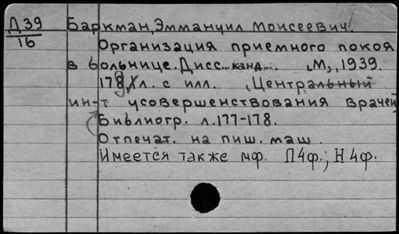 Д39 Баркман, Эммануил Моисеевич.
16 Организация приемного покоя
в больнице. Дисс... канд... М., 1939.
178 л. с илл. Центральный
ин-т усовершенствования врачей
Библиогр. л. 177-178.
Отпечат. на пиш. маш.
Имеется также мф. П4ф.; Н4ф.